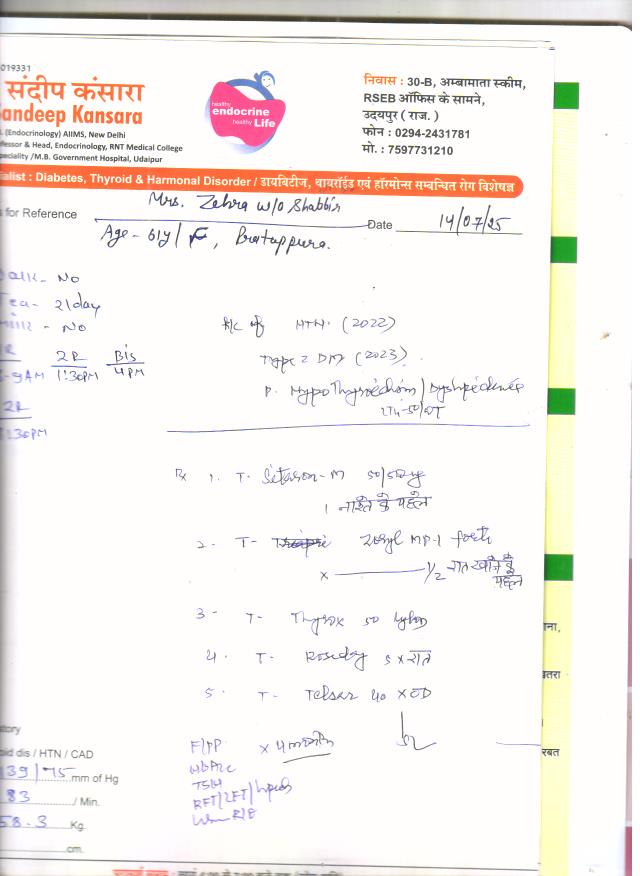 019331
संदीप कंसारा
andeep Kansara
(Endocrinology) AIIMS, New Delhi
fessor & Head, Endocrinology, RNT Medical College
peciality /M.B. Government Hospital, Udaipur
healthy
endocrine
healthy Life
निवास : 30-B, अम्बामाता स्कीम,
RSEB ऑफिस के सामने,
उदयपुर ( राज. )
फोन : 0294-2431781
मो. : 7597731210
ialist : Diabetes, Thyroid & Harmonal Disorder / डायबिटीज, थायरॉईड एवं हॉरमोन्स सम्बन्धित रोग विशेषज्ञ
Mrs. Zehra w/o Shabbir
for Reference
Date 14/07/25
Age - 61y/F,
No
Tea - 2/day
- No
-9AM 2R 1:30PM Bis 4PM
2R
:30PM
K/C of HTN. (2022)
Type 2 DM (2023).
P. Hypothyroidism /
Rx 1. T. -M 50/500mg
1 नाश्ते के पहले
2 - T - MP-1 forte
x 1/2 रात खाने के पहले
3 - T - Thyrox 50
4. T - Roseday 5 x रात
5. T - Telsar 40 x OD
F/PP x 4 months
HbA1c
TSH
RFT/LFT/Lipids
R/E
tory
oid dis / HTN / CAD
139/75 mm of Hg
83 / Min.
58.3 Kg.
cm.
ना,
तरा
रबत